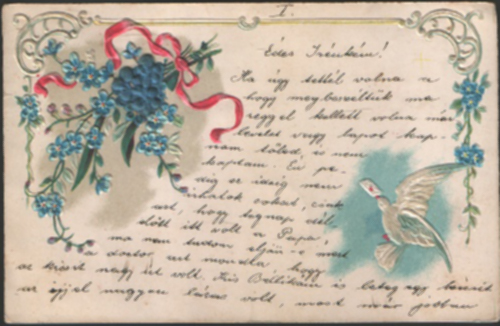 I.
Édes Irénkém!
Ha úgy tettél volna a
hogy megbeszéltük ma
reggel kellett volna már
levelet vagy lapot kap-
nom tőled, is nem
kaptam. Én pe-
dig az ideig nem
írhatok sokat, csak
azt, hogy tegnap dél-
előtt itt volt a Papa,
ma nem tudom eljön-e mert
a doctor azt mondta, hogy
az kissé nagy út volt. Kis Bélikém is beteg egy
az éjjel nagyon lázas volt, most már jobban